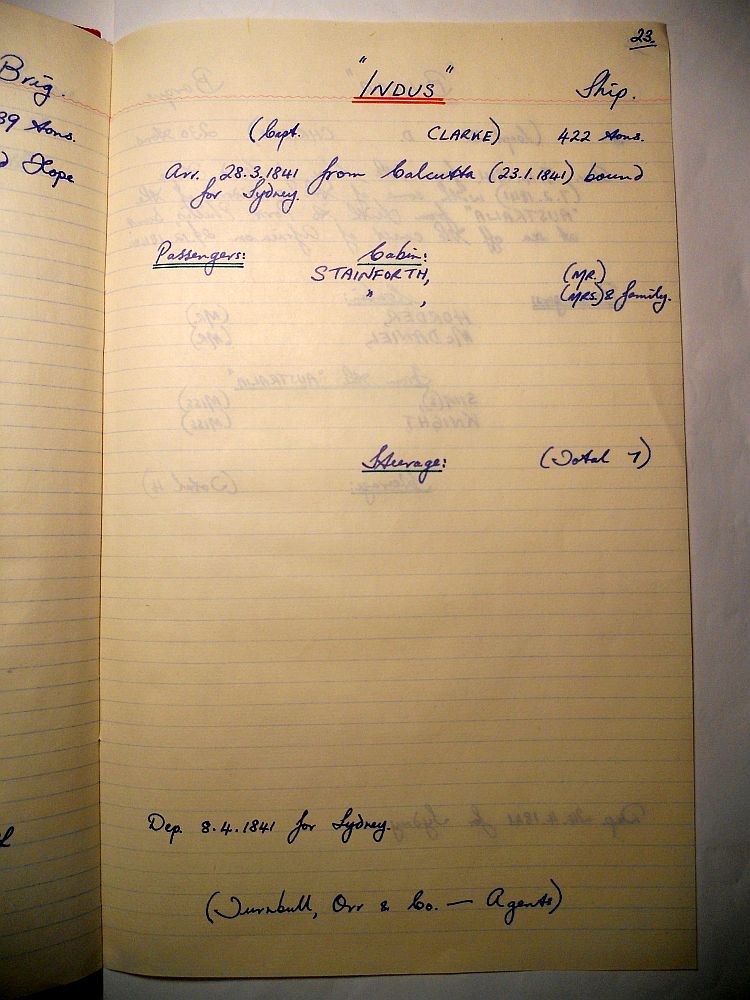 Brig.
39 tons.
Hope
23.
"INDUS" Ship.
(Capt. CLARKE) 422 tons.
Arr. 28.3.1841 from Calcutta (23.1.1841) bound
for Sydney.
Passengers: Cabin:
STAINFORTH, (MR.)
" , (MRS.) & family.
Steerage: (Total 7)
Dep. 8.4.1841 for Sydney.
(Turnbull, Orr & Co. — Agents)